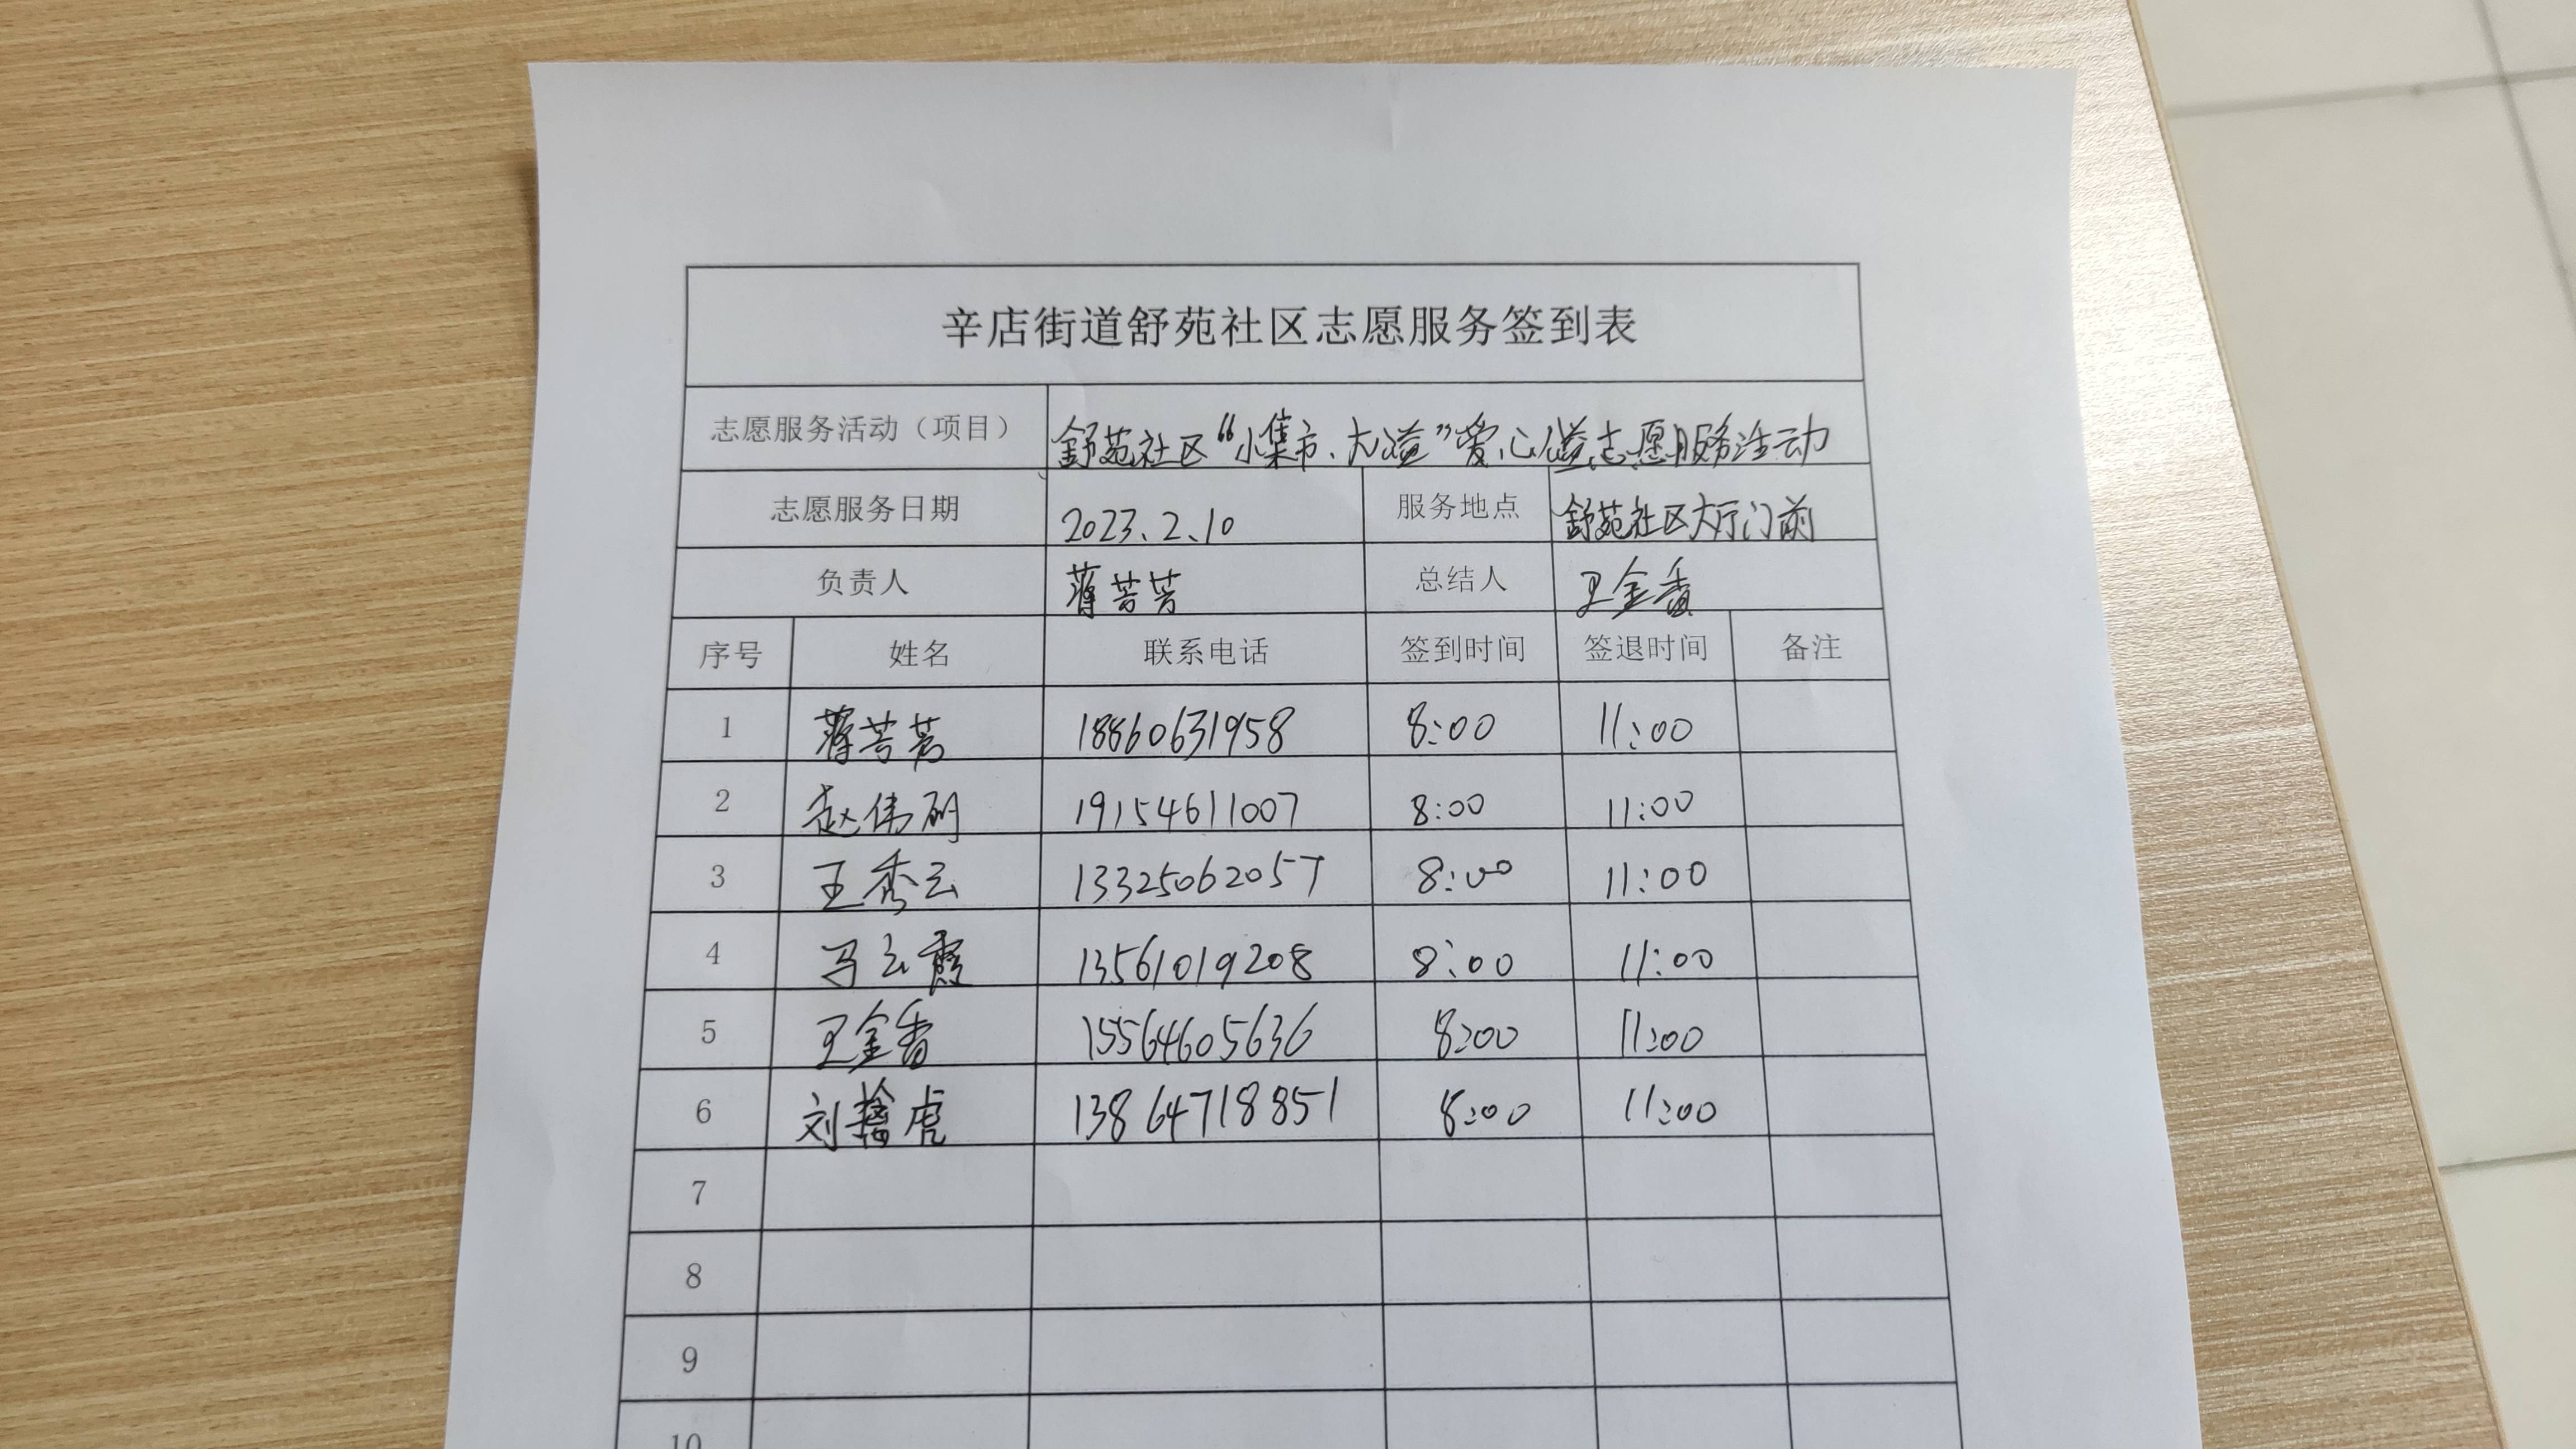 辛店街道舒苑社区志愿服务签到表
志愿服务活动（项目） 舒苑社区“小集市、大公益”爱心公益志愿服务活动
志愿服务日期 2023.2.10 服务地点 舒苑社区大厅门前
负责人 蒋芳芳 总结人 王金香
序号 姓名 联系电话 签到时间 签退时间 备注
1 蒋芳芳 18860631958 8:00 11:00
2 赵伟 19154611007 8:00 11:00
3 王秀云 13325062057 8:00 11:00
4 冯云霞 13561019208 8:00 11:00
5 王金香 15564605636 8:00 11:00
6 刘擒虎 13864718851 8:00 11:00
7
8
9
10